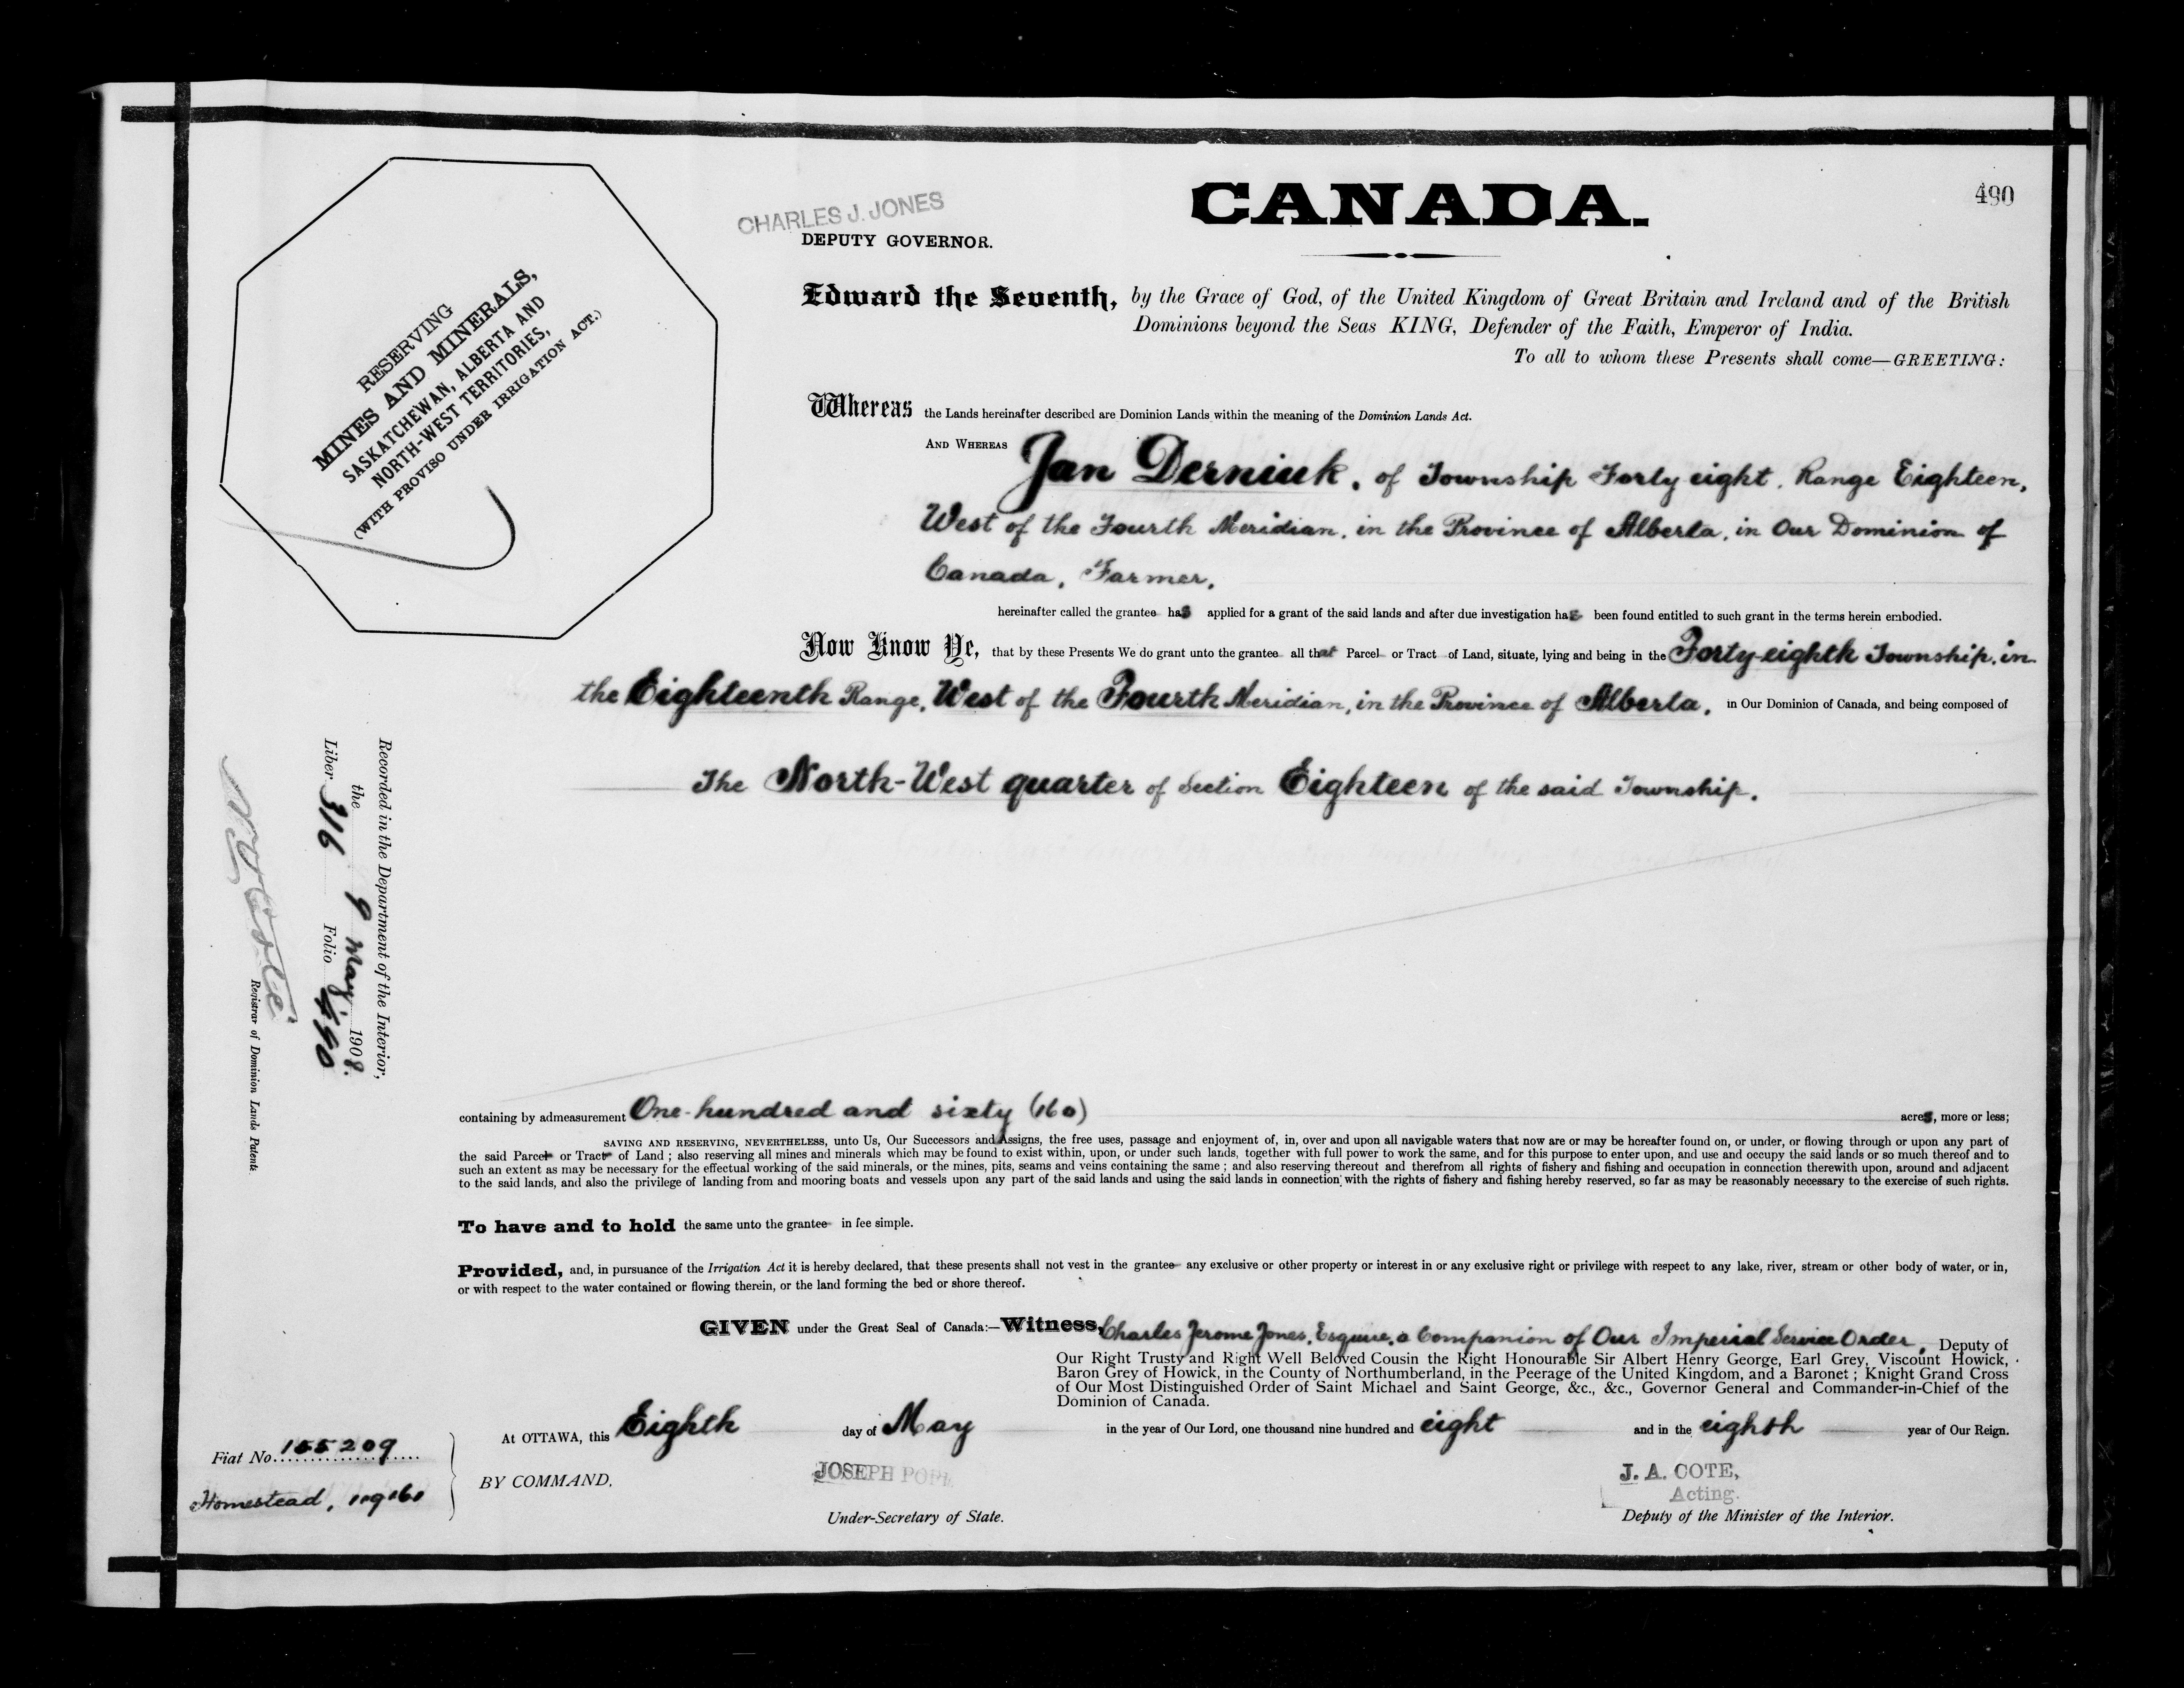 490
CANADA.
CHARLES J. JONES
DEPUTY GOVERNOR.
RESERVING
MINES AND MINERALS,
SASKATCHEWAN, ALBERTA AND
NORTH-WEST TERRITORIES,
(WITH PROVISO UNDER IRRIGATION ACT.)
Edward the Seventh, by the Grace of God, of the United Kingdom of Great Britain and Ireland and of the British
Dominions beyond the Seas KING, Defender of the Faith, Emperor of India.
To all to whom these Presents shall come—GREETING:
Whereas the Lands hereinafter described are Dominion Lands within the meaning of the Dominion Lands Act.
AND WHEREAS Jan Derniuk, of Township Forty eight, Range Eighteen,
West of the Fourth Meridian, in the Province of Alberta, in Our Dominion of
Canada, Farmer,
hereinafter called the grantee has applied for a grant of the said lands and after due investigation has been found entitled to such grant in the terms herein embodied.
Now Know Ye, that by these Presents We do grant unto the grantee all that Parcel or Tract of Land, situate, lying and being in the Forty-eighth Township, in
the Eighteenth Range, West of the Fourth Meridian, in the Province of Alberta, in Our Dominion of Canada, and being composed of
The North-West quarter of Section Eighteen of the said Township.
Recorded in the Department of the Interior,
the 9 May 1908.
Liber 316 Folio 490
Registrar of Dominion Lands Patents
containing by admeasurement One hundred and sixty (160) acres, more or less;
SAVING AND RESERVING, NEVERTHELESS, unto Us, Our Successors and Assigns, the free uses, passage and enjoyment of, in, over and upon all navigable waters that now are or may be hereafter found on, or under, or flowing through or upon any part of
the said Parcel or Tract of Land ; also reserving all mines and minerals which may be found to exist within, upon, or under such lands, together with full power to work the same, and for this purpose to enter upon, and use and occupy the said lands or so much thereof and to
such an extent as may be necessary for the effectual working of the said minerals, or the mines, pits, seams and veins containing the same ; and also reserving thereout and therefrom all rights of fishery and fishing and occupation in connection therewith upon, around and adjacent
to the said lands, and also the privilege of landing from and mooring boats and vessels upon any part of the said lands and using the said lands in connection with the rights of fishery and fishing hereby reserved, so far as may be reasonably necessary to the exercise of such rights.
To have and to hold the same unto the grantee in fee simple.
Provided, and, in pursuance of the Irrigation Act it is hereby declared, that these presents shall not vest in the grantee any exclusive or other property or interest in or any exclusive right or privilege with respect to any lake, river, stream or other body of water, or in,
or with respect to the water contained or flowing therein, or the land forming the bed or shore thereof.
GIVEN under the Great Seal of Canada:—Witness, Charles Jerome Jones, Esquire, a Companion of Our Imperial Service Order, Deputy of
Our Right Trusty and Right Well Beloved Cousin the Right Honourable Sir Albert Henry George, Earl Grey, Viscount Howick,
Baron Grey of Howick, in the County of Northumberland, in the Peerage of the United Kingdom, and a Baronet ; Knight Grand Cross
of Our Most Distinguished Order of Saint Michael and Saint George, &c., &c., Governor General and Commander-in-Chief of the
Dominion of Canada.
At OTTAWA, this Eighth day of May in the year of Our Lord, one thousand nine hundred and eight and in the eighth year of Our Reign.
Fiat No. 155209
Homestead,
BY COMMAND,
JOSEPH POPE
Under-Secretary of State.
J. A. COTE,
Acting.
Deputy of the Minister of the Interior.